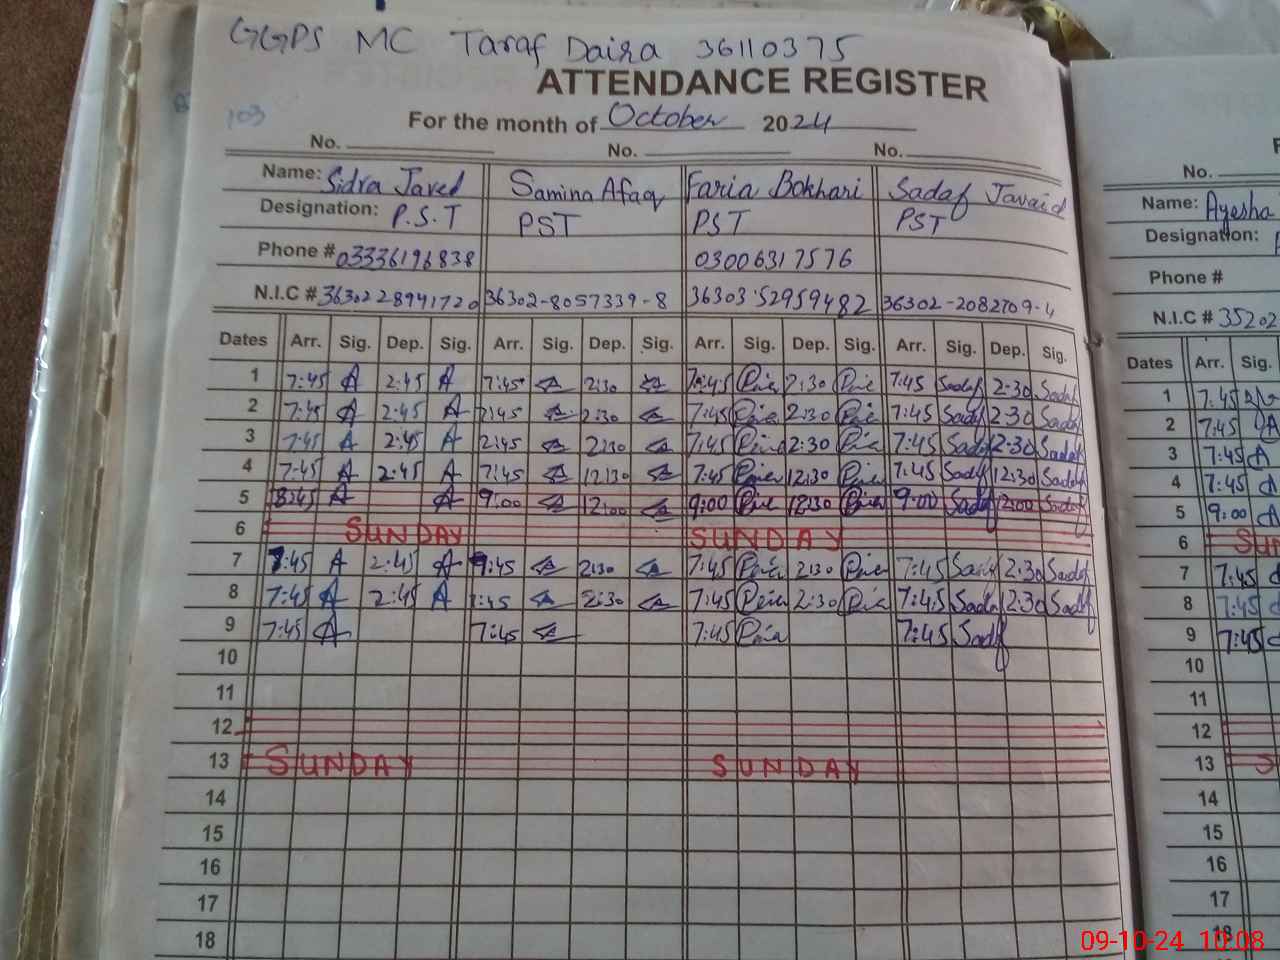 GGPS MC Taraf Daira 36110375
ATTENDANCE REGISTER
103
For the month of October 2024
No. No. No.
Name: Sidra Javed Samina Afaq Faria Bokhari Sadaf Javaid
Designation: P.S.T PST PST PST
Phone # 03336196838 03006317576
N.I.C # 3630228941720 36302-8057339-8 36303-52959482 36302-2082709-4
Dates Arr. Sig. Dep. Sig. Arr. Sig. Dep. Sig. Arr. Sig. Dep. Sig. Arr. Sig. Dep. Sig.
1 7:45 A 2:45 A 7:45 2:30 7:45 2:30 7:45 Sadaf 2:30 Sadaf
2 7:45 A 2:45 A 7:45 2:30 7:45 2:30 7:45 Sadaf 2:30 Sadaf
3 7:45 A 2:45 A 2:45 2:30 7:45 2:30 7:45 Sadaf 2:30 Sadaf
4 7:45 A 2:45 A 7:45 12:30 7:45 12:30 7:45 Sadaf 12:30 Sadaf
5 A A 9:00 12:00 9:00 12:30 9:00 Sadaf 12:00 Sadaf
6 SUNDAY SUNDAY
7 7:45 A 2:45 A 2:30 7:45 2:30 7:45 Sadaf 2:30 Sadaf
8 7:45 A 2:45 A 2:30 7:45 2:30 7:45 Sadaf 2:30 Sadaf
9 7:45 A 7:45 7:45 7:45 Sadaf
10
11
12
13 SUNDAY SUNDAY
14
15
16
17
18
No.
Name: Ayesha
Designation:
Phone #
N.I.C # 35202
Dates Arr. Sig.
1 7:45
2 7:45
3 7:45
4 7:45
5 9:00
6 SUN
7 7:45
8 7:45
9 7:45
10
11
12
13 S
14
15
16
17
18
09-10-24 10:08